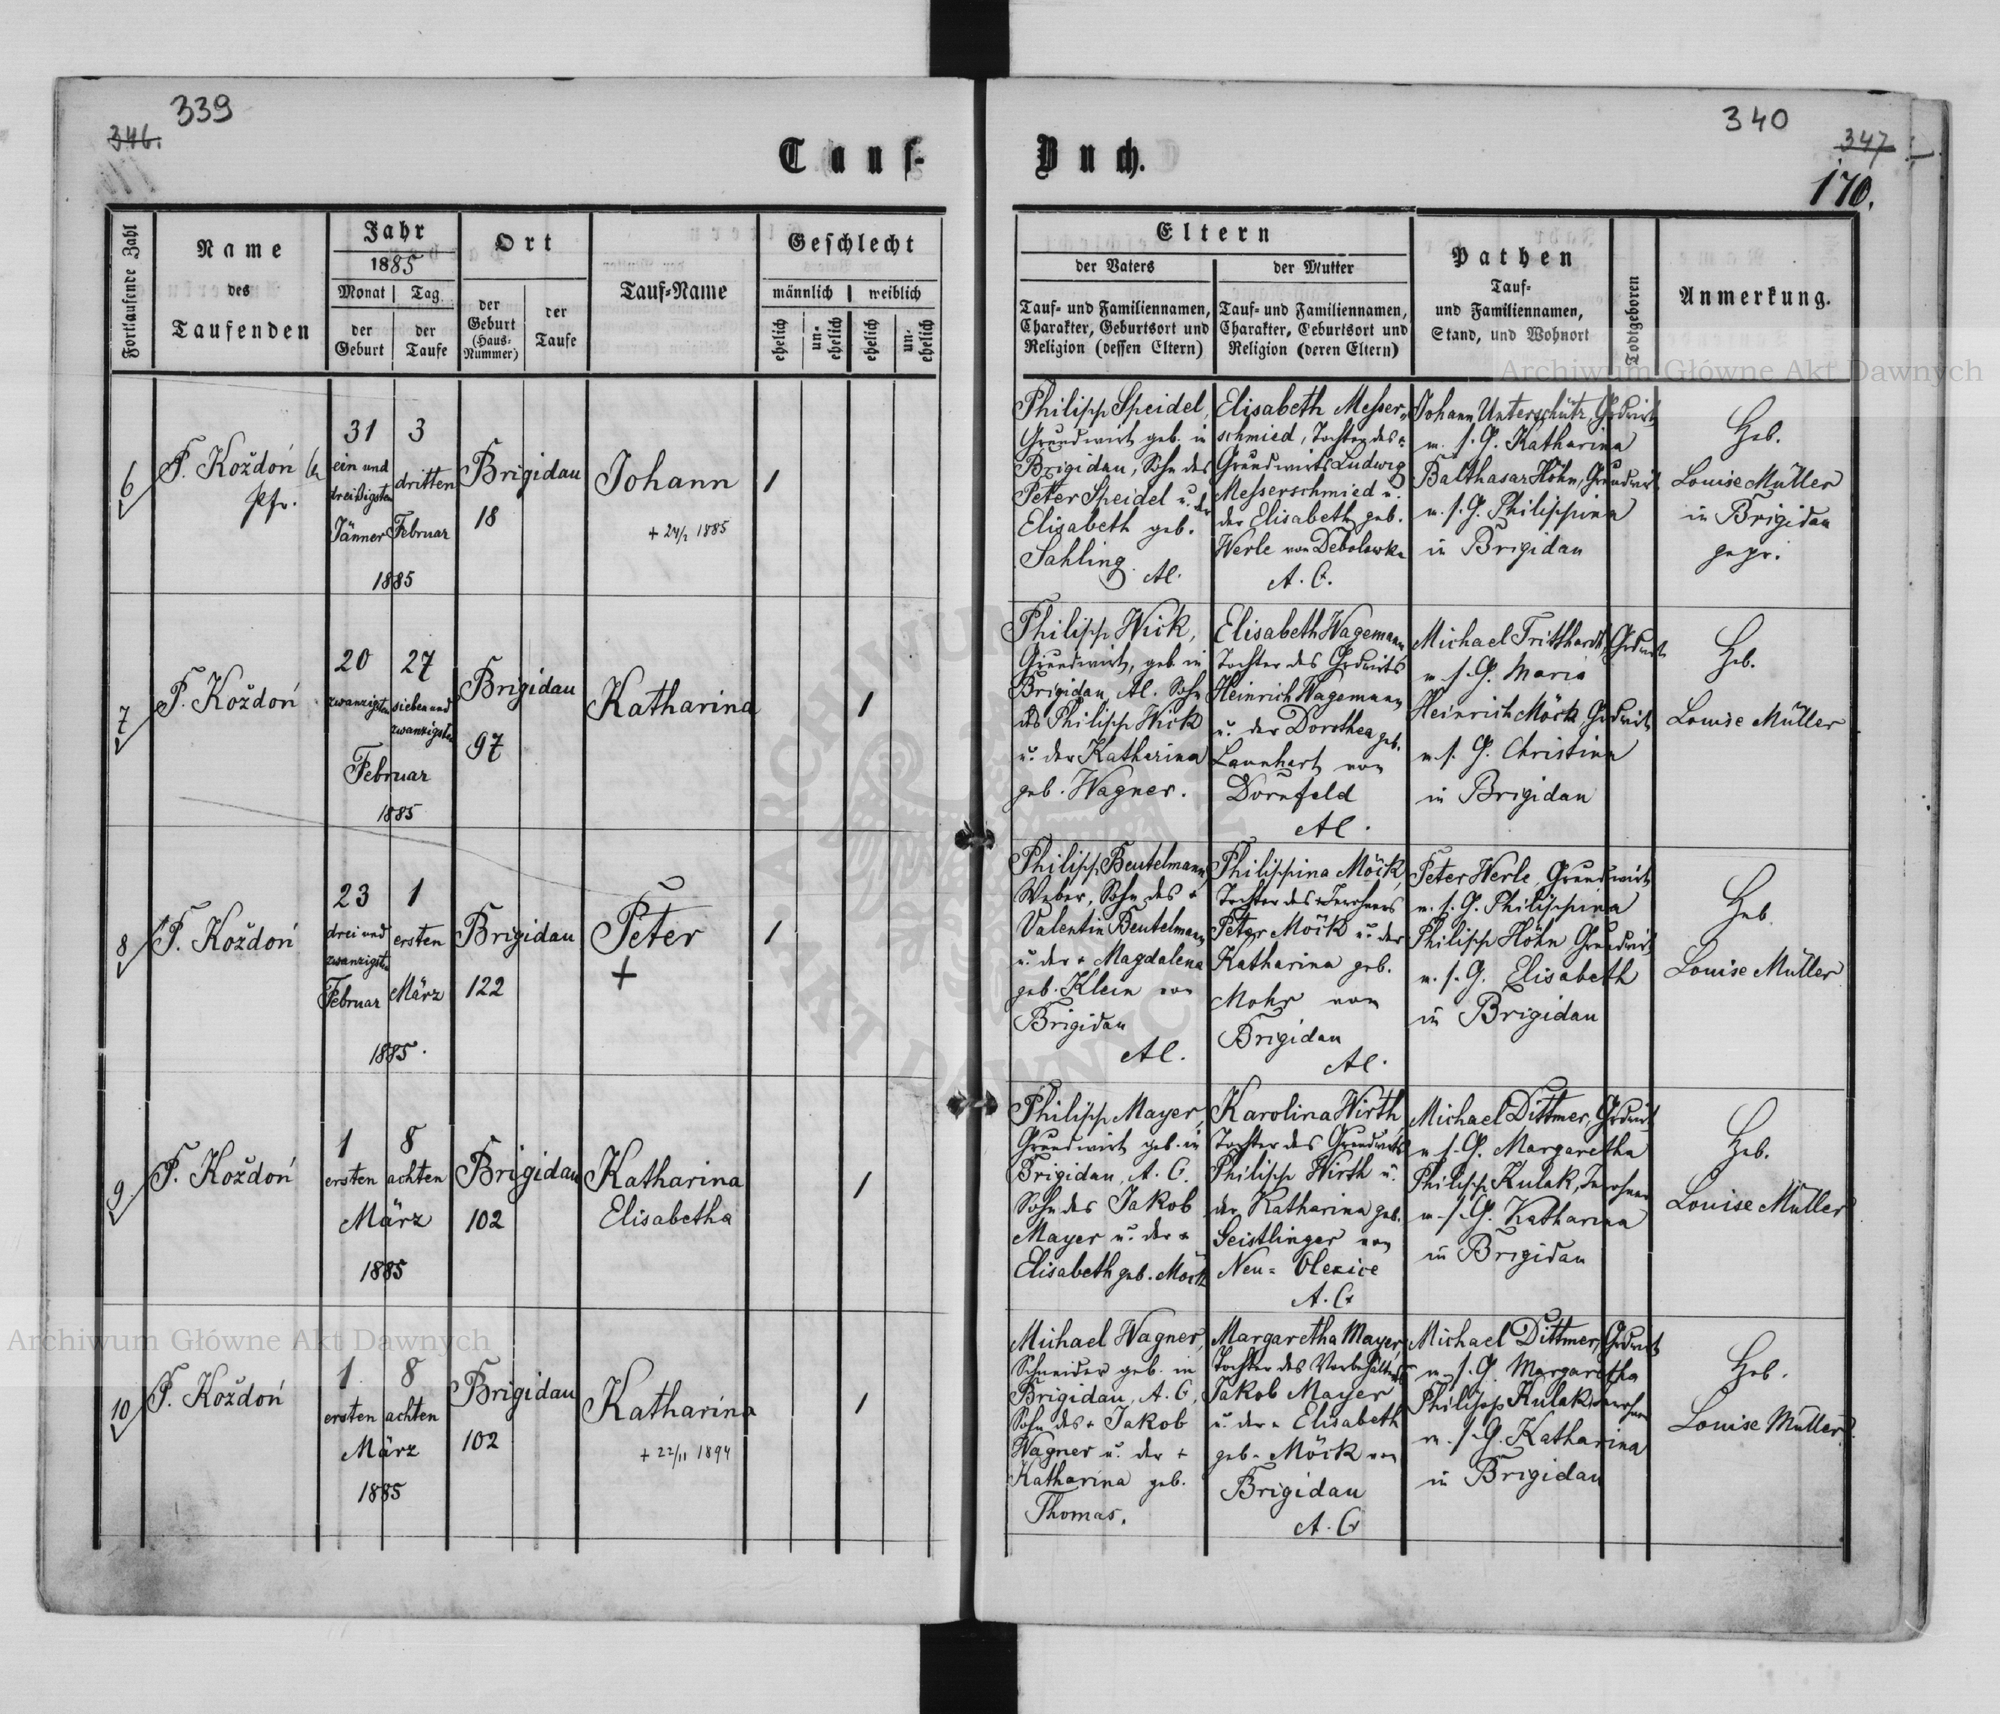 339
346.
340
347
170.
Tauf-Buch.
Fortlaufende Zahl
Name
des
Taufenden
Jahr
1885
Monat
Tag
der
Geburt
der
Taufe
Ort
der
Geburt
(Haus-
Nummer)
der
Taufe
Tauf-Name
Geschlecht
männlich
weiblich
ehelich
un-
ehelich
ehelich
un-
ehelich
Eltern
der Vaters
der Mutter
Tauf- und Familiennamen,
Charakter, Geburtsort und
Religion (dessen Eltern)
Tauf- und Familiennamen,
Charakter, Geburtsort und
Religion (deren Eltern)
Pathen
Tauf-
und Familiennamen,
Stand, und Wohnort
Todtgeboren
Anmerkung.
6
F. Koždoń
Pfr.
31
ein und
dreißigsten
Jänner
3
dritten
Februar
1885
Brigidau
18
Johann
1
Philipp Speidel,
Grundwirt geb. in
Brigidau, Sohn des
Peter Speidel u. der
Elisabeth geb.
Sahling.
Al.
Elisabeth Messer-
schmied, Tochter des
Grundwirts Ludwig
Messerschmied u.
der Elisabeth geb.
Werle von Debolowka
A. C.
Johann Unterschütz, Grdwirt
m. s. G. Katharina
Balthasar Höhn, Grundwirt
m. s. G. Philippina
in Brigidau
Heb.
Louise Müller
in Brigidau
gepr.
7
F. Koždoń
20
zwanzigsten
27
sieben und
zwanzigsten
Februar
1885
Brigidau
97
Katharina
1
Philipp Wick,
Grundwirt, geb. in
Brigidau, Al. Sohn
des Philipp Wick
u. der Katharina
geb. Wagner.
Elisabeth Wagemann
Tochter des Grdwirts
Heinrich Wagemann
u. der Dorothea geb.
Launhart von
Dornfeld
Al.
Michael Tritthardt, Grdwirt
m. s. G. Maria
Heinrich Möck, Grdwirt
m. s. G. Christina
in Brigidau
Heb.
Louise Müller
8
F. Koždoń
23
drei und
zwanzigsten
Februar
1
ersten
März
1885.
Brigidau
122
Peter
+
1
Philipp Beutelmann,
Weber, Sohn des +
Valentin Beutelmann
u. der + Magdalena
geb. Klein von
Brigidau
Al.
Philippina Möck,
Tochter des Inwohners
Peter Möck u. der
Katharina geb.
Mohr von
Brigidau
Al.
Peter Werle, Grundwirt
m. s. G. Philippina
Philipp Höhn Grundwirt
m. s. G. Elisabeth
in Brigidau
Heb.
Louise Müller
9.
F. Koždoń
1
ersten
8
achten
März
1885
Brigidau
102
Katharina
Elisabetha
1
Philipp Mayer,
Grundwirt geb. in
Brigidau, A. C.
Sohn des Jakob
Mayer u. der +
Elisabeth geb. Möck
Karolina Wirth,
Tochter des Grundwirts
Philipp Wirth u.
der Katharina geb.
Geistlinger von
Neu-Olexice
A. C.
Michael Dittmer, Grdwirt
m. s. G. Margaretha
Philipp Kulak, Inwohner
m. s. G. Katharina
in Brigidau
Heb.
Louise Müller
10
F. Koždoń
1
ersten
8
achten
März
1885
Brigidau
102
Katharina
+ 22/11 1894
1
Michael Wagner,
Schneider geb. in
Brigidau, A. C.,
Sohn des + Jakob
Wagner u. der +
Katharina geb.
Thomas.
Margaretha Mayer,
Tochter des
Jakob Mayer
u. der + Elisabeth
geb. Möck von
Brigidau
A. C.
Michael Dittmer, Grdwirt
m. s. G. Margaretha
Philipp Kulak, Inwohner
m. s. G. Katharina
in Brigidau
Heb.
Louise Müller
Archiwum Główne Akt Dawnych
Archiwum Główne Akt Dawnych
ARCHIWUM
AKT DAWNYCH